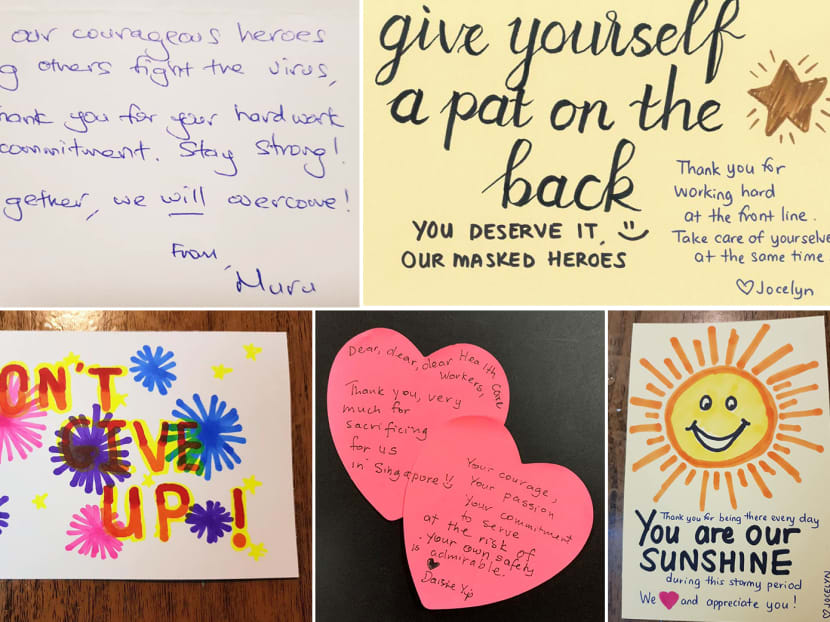 our courageous heroes
g others fight the virus,
hank you for your hard work
commitment. Stay Strong!
gether, we will overcome!
From,
give yourself
a pat on the
back
YOU DESERVE IT,
OUR MASKED HEROES
Thank you for
working hard
at the front line.
Take care of yourselve
at the same time
Jocelyn
ON'T
GIVE
UP!
Dear, dear, dear Health Care
Workers,
Thank you, very
much for
sacrificing
for us
in Singapore
Your courage,
Your passion
Your commitment
to serve
at the risk of
your own safety
is admirable.
Daiske Yip
Thank you for being there every day
You are our
SUNSHINE
during this stormy period
We and appreciate you!
JOCELYN